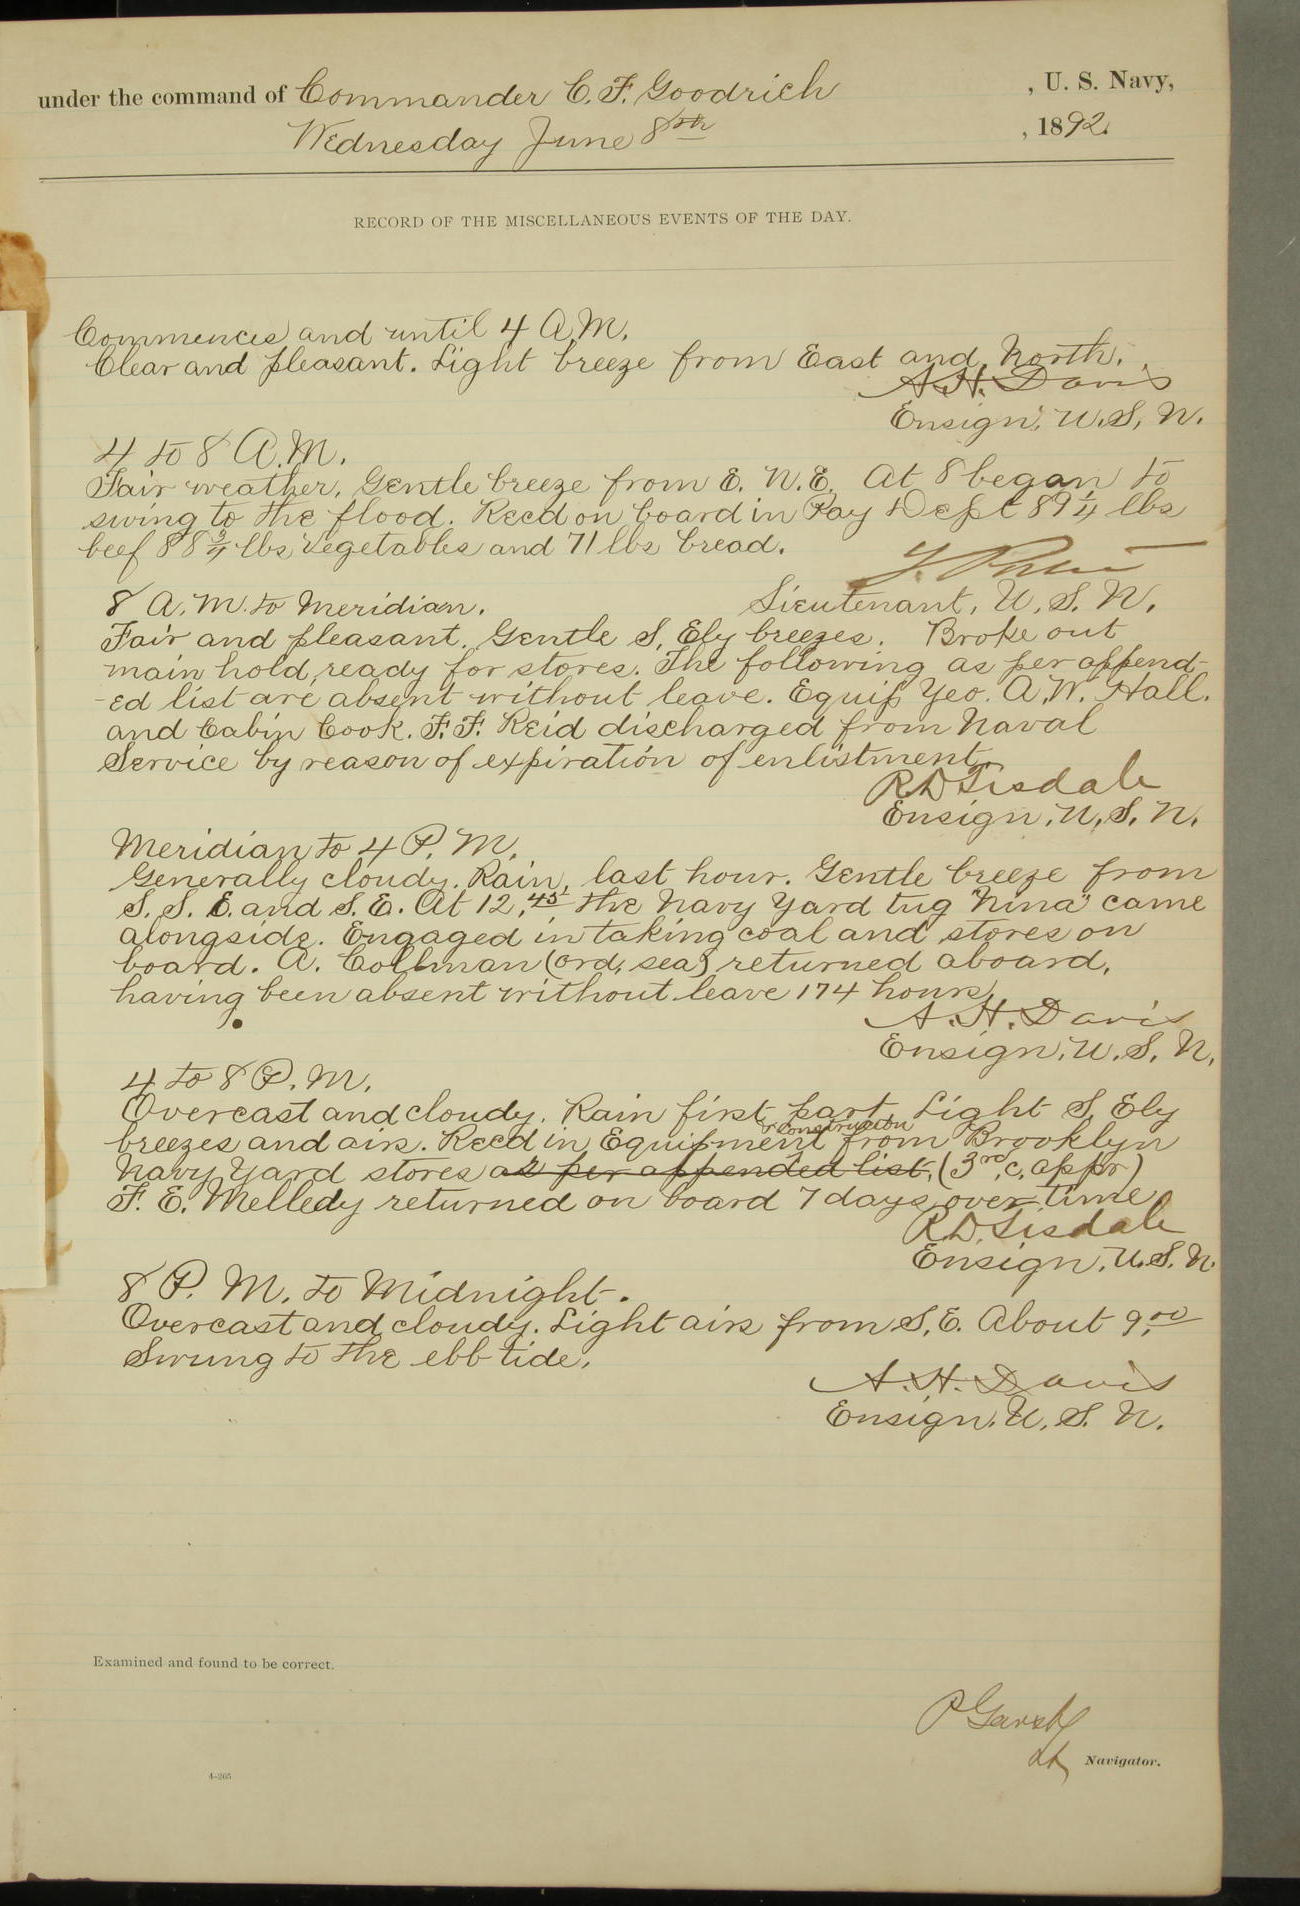 under the command of Commander C. F. Goodrich , U. S. Navy,
Wednesday June 8th , 1892.
RECORD OF THE MISCELLANEOUS EVENTS OF THE DAY.
Commences and until 4 A.M.
Clear and pleasant. Light breeze from East and North.
A. H. Davis
Ensign, U. S. N.
4 to 8 A.M.
Fair weather. Gentle breeze from E. N. E. At 8 began to
swing to the flood. Recd on board in Pay Dept 89 1/4 lbs
beef 88 3/4 lbs vegetables and 71 lbs bread.
Lieutenant, U. S. N.
8 A.M. to Meridian.
Fair and pleasant. Gentle S. Ely breezes. Broke out
main hold, ready for stores. The following as per append-
-ed list are absent without leave. Equip. Yeo. A. W. Hall.
and Cabin Cook. F. F. Reid discharged from Naval
Service by reason of expiration of enlistment.
R. D. Tisdale
Ensign, U. S. N.
Meridian to 4 P. M.
Generally cloudy. Rain, last hour. Gentle breeze from
S. S. E. and S. E. At 12.45 the Navy Yard tug "Nina" came
alongside. Engaged in taking coal and stores on
board. A. Collman (ord. sea) returned aboard,
having been absent without leave 174 hours.
A. H. Davis
Ensign, U. S. N.
4 to 8 P. M.
Overcast and cloudy. Rain first part. Light S. Ely
& Construction
breezes and airs. Recd in Equipment from Brooklyn
Navy Yard stores as per appended list. (3rd c. appr)
F. E. Melledy returned on board 7 days over time
R. D. Tisdale
Ensign, U. S. N.
8 P. M. to Midnight.
Overcast and cloudy. Light airs from S. E. About 9.00
Swung to the ebb tide.
A. H. Davis
Ensign, U. S. N.
Examined and found to be correct.
P Garst
Lt Navigator.
4-265